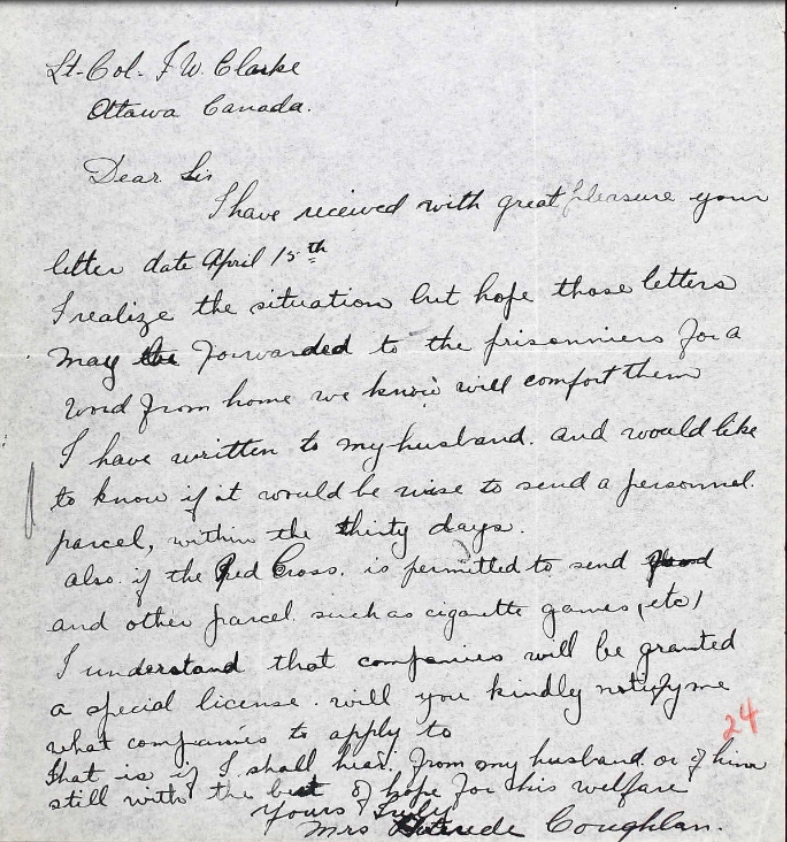 Lt-Col. F. W. Clarke
Ottawa Canada.
Dear Sir
I have received with great pleasure your
letter date April 15th
I realize the situation but hope those letters
may be forwarded to the prisonniers for a
word from home we know will comfort them
I have written to my husband. and would like
to know if it would be wise to send a personnel
parcel, within the thirty days.
also. if the Red Cross. is permitted to send
and other parcel such as cigarette games, (etc)
I understand that companies will be granted
a special license. will you kindly notify me
what companies to apply to
that is if I shall hear. from my husband. or of him
still with the best of hope for his welfare
Yours Truly
Mrs Coughlan.
24